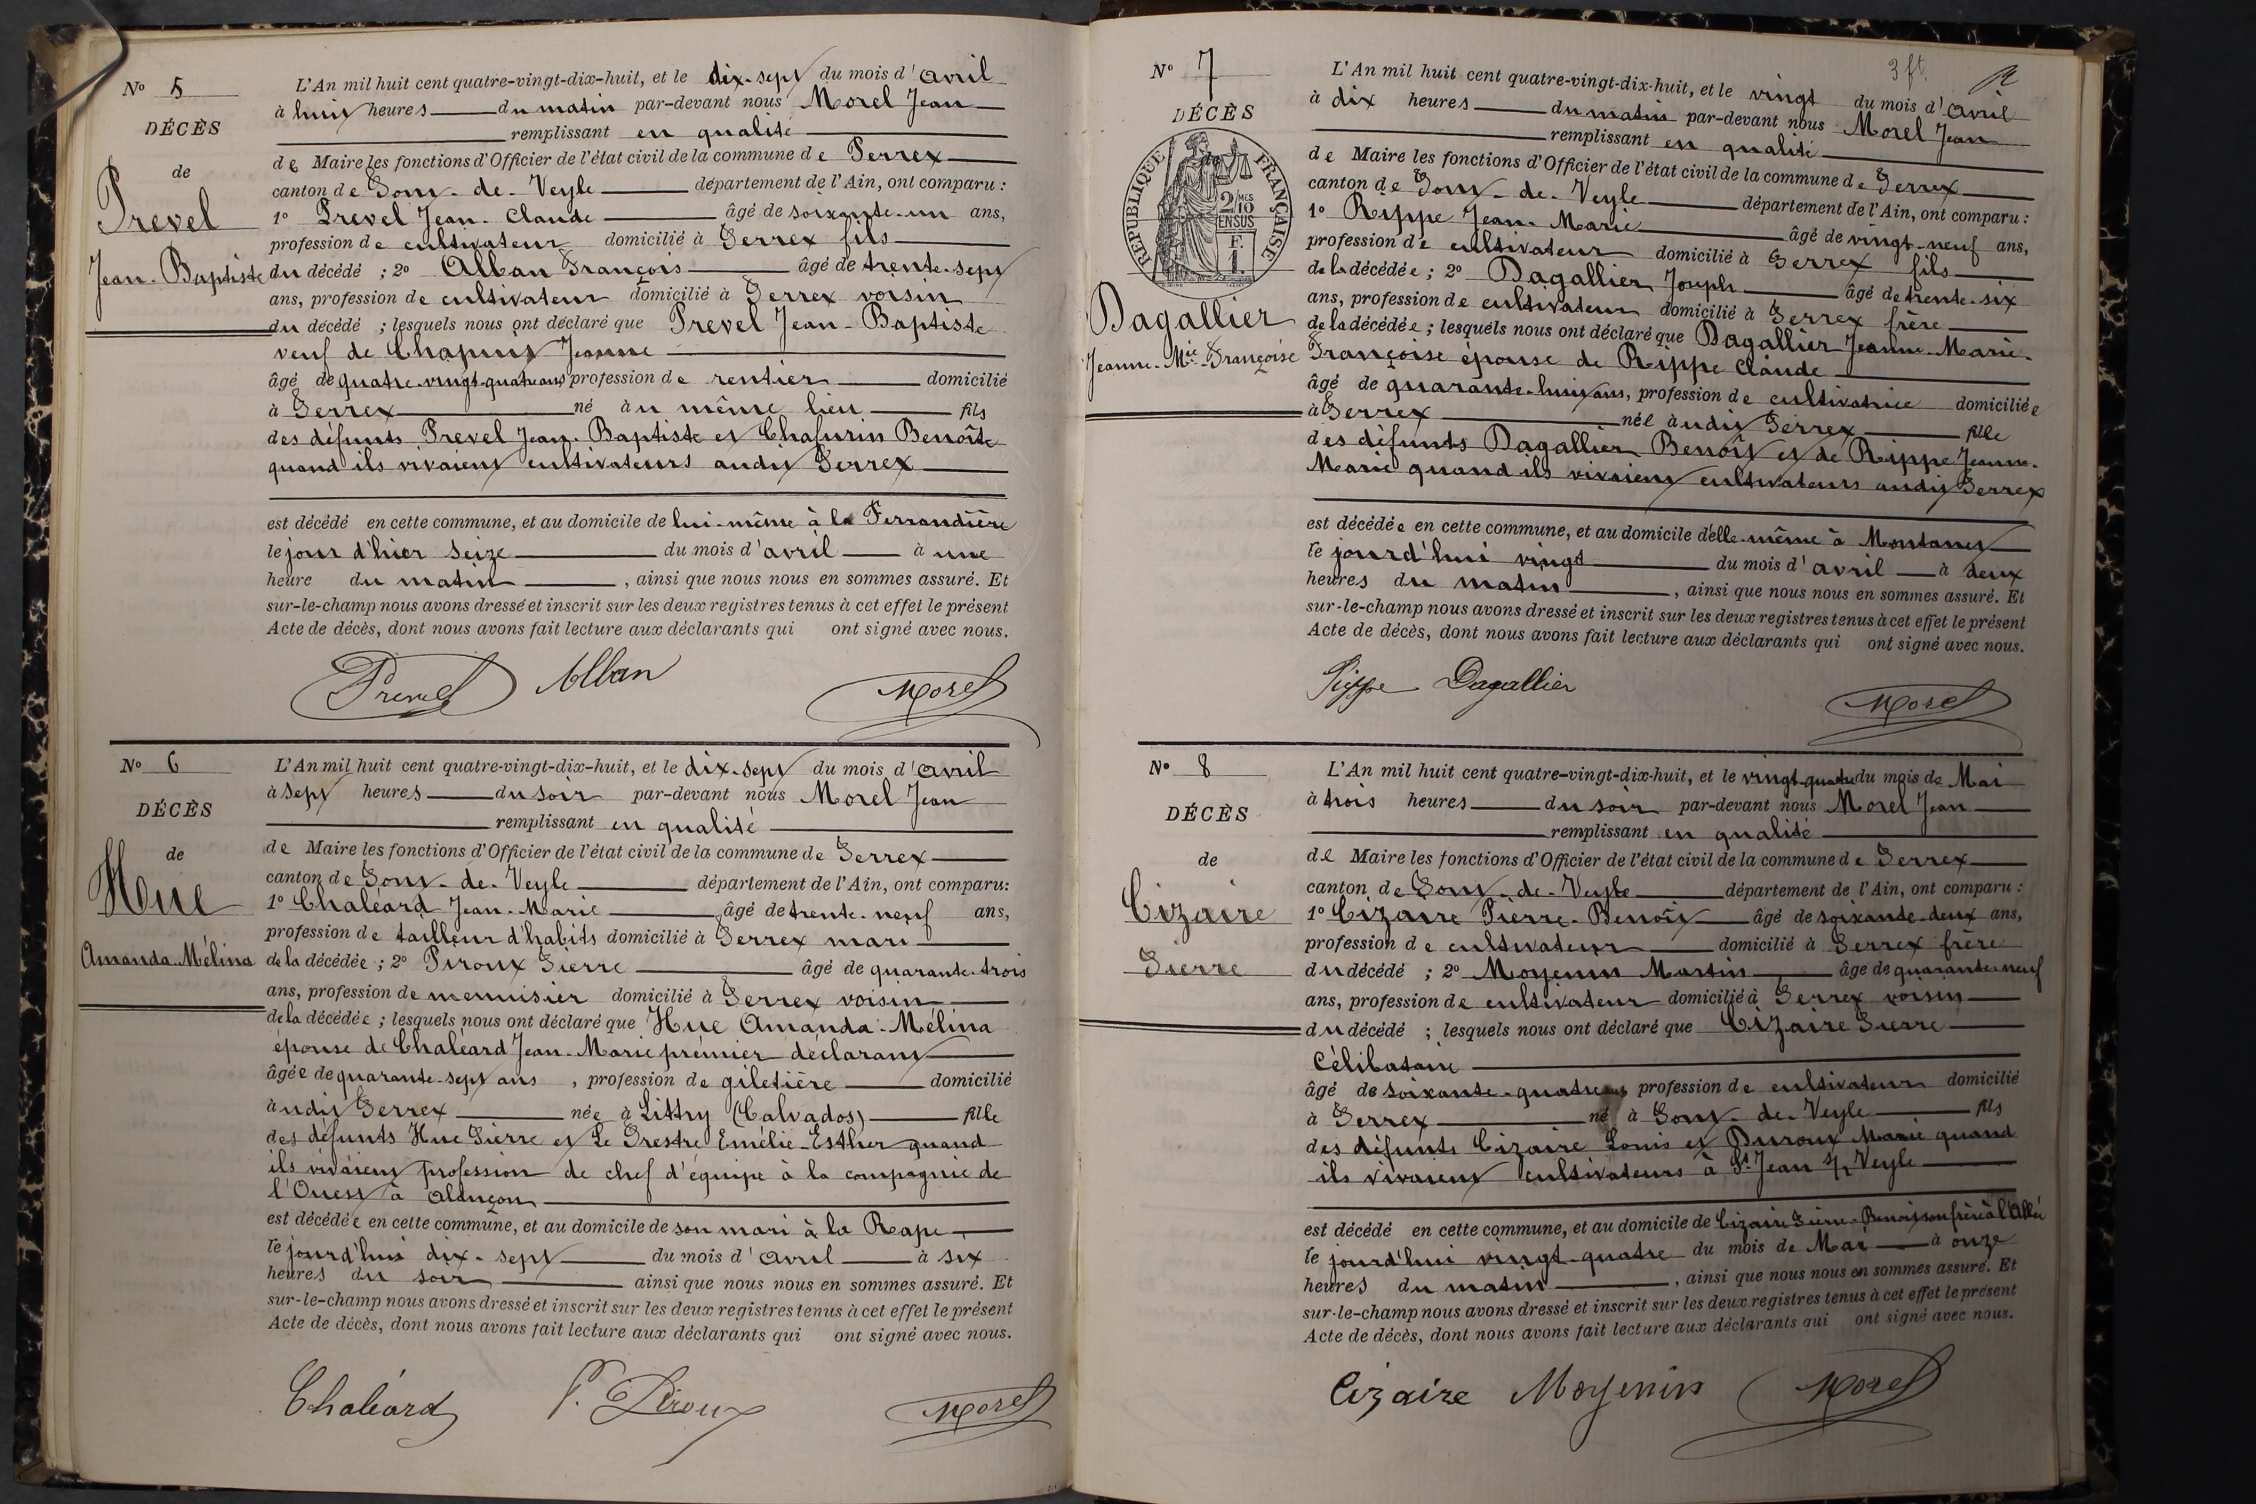 N° 5
DÉCÈS
de
Prevel
Jean-Baptiste
L'An mil huit cent quatre-vingt-dix-huit, et le dix-sept du mois d'avril
à huit heures du matin par-devant nous Morel Jean
remplissant en qualité
de Maire les fonctions d'Officier de l'état civil de la commune de Perrex
canton de Pont-de-Veyle département de l'Ain, ont comparu :
1° Prevel Jean-Claude âgé de soixante-un ans,
profession de cultivateur domicilié à Perrex fils
du décédé ; 2° Alban François âgé de trente-sept
ans, profession de cultivateur domicilié à Perrex voisin
du décédé ; lesquels nous ont déclaré que Prevel Jean-Baptiste
veuf de Chapuis Jeanne
âgé de quatre-vingt-quatre ans profession de rentier domicilié
à Perrex né au même lieu fils
des défunts Prevel Jean-Baptiste et Chafurin Benoîte
quand ils vivaient cultivateurs audit Perrex
est décédé en cette commune, et au domicile de lui-même à la Ferrandière
le jour d'hier seize du mois d'avril à une
heure du matin, ainsi que nous nous en sommes assuré. Et
sur-le-champ nous avons dressé et inscrit sur les deux registres tenus à cet effet le présent
Acte de décès, dont nous avons fait lecture aux déclarants qui ont signé avec nous.
Prevel Alban Morel
N° 6
DÉCÈS
de
Hue
Amanda-Mélina
L'An mil huit cent quatre-vingt-dix-huit, et le dix-sept du mois d'avril
à sept heures du soir par-devant nous Morel Jean
remplissant en qualité
de Maire les fonctions d'Officier de l'état civil de la commune de Perrex
canton de Pont-de-Veyle département de l'Ain, ont comparu :
1° Chaléard Jean-Marie âgé de trente-neuf ans,
profession de tailleur d'habits domicilié à Perrex mari
de la décédée ; 2° Piroux Pierre âgé de quarante-trois
ans, profession de menuisier domicilié à Perrex voisin
de la décédée ; lesquels nous ont déclaré que Hue Amanda-Mélina
épouse de Chaléard Jean-Marie premier déclarant
âgée de quarante-sept ans, profession de giletière domicilié
audit Perrex née à Littry (Calvados) fille
des défunts Hue Pierre et Le Prestre Emélie-Esther quand
ils vivaient profession de chef d'équipe à la compagnie de
l'Ouest à Alençon
est décédée en cette commune, et au domicile de son mari à la Rape
le jourd'hui dix-sept du mois d'avril à six
heures du soir ainsi que nous nous en sommes assuré. Et
sur-le-champ nous avons dressé et inscrit sur les deux registres tenus à cet effet le présent
Acte de décès, dont nous avons fait lecture aux déclarants qui ont signé avec nous.
Chaléard P. Piroux Morel
3 ft.
N° 7
DÉCÈS
RÉPUBLIQUE FRANÇAISE
2/10 MES
EN SUS
F.
1.
de
Dagallier
Jeanne-Mie-Françoise
L'An mil huit cent quatre-vingt-dix-huit, et le vingt du mois d'avril
à dix heures du matin par-devant nous Morel Jean
remplissant en qualité
de Maire les fonctions d'Officier de l'état civil de la commune de Perrex
canton de Pont-de-Veyle département de l'Ain, ont comparu :
1° Rippe Jean-Marie âgé de vingt-neuf ans,
profession de cultivateur domicilié à Perrex fils
de la décédée ; 2° Dagallier Joseph âgé de trente-six
ans, profession de cultivateur domicilié à Perrex frère
de la décédée ; lesquels nous ont déclaré que Dagallier Jeanne-Marie-
Françoise épouse de Rippe Claude
âgé de quarante-huit ans, profession de cultivatrice domiciliée
à Perrex née audit Perrex fille
des défunts Dagallier Benoît et de Rippe Jeanne-
Marie quand ils vivaient cultivateurs audit Perrex
est décédée en cette commune, et au domicile d'elle-même à Montanet
le jourd'hui vingt du mois d'avril à deux
heures du matin, ainsi que nous nous en sommes assuré. Et
sur-le-champ nous avons dressé et inscrit sur les deux registres tenus à cet effet le présent
Acte de décès, dont nous avons fait lecture aux déclarants qui ont signé avec nous.
Rippe Dagallier Morel
N° 8
DÉCÈS
de
Cizaire
Pierre
L'An mil huit cent quatre-vingt-dix-huit, et le vingt-quatre du mois de Mai
à trois heures du soir par-devant nous Morel Jean
remplissant en qualité
de Maire les fonctions d'Officier de l'état civil de la commune de Perrex
canton de Pont-de-Veyle département de l'Ain, ont comparu :
1° Cizaire Pierre-Benoît âgé de soixante-deux ans,
profession de cultivateur domicilié à Perrex frère
du décédé ; 2° Moyenin Martin âgé de quarante-neuf
ans, profession de cultivateur domicilié à Perrex voisin
du décédé ; lesquels nous ont déclaré que Cizaire Pierre
Célibataire
âgé de soixante-quatre ans profession de cultivateur domicilié
à Perrex né à Pont-de-Veyle fils
des défunts Cizaire Louis et Duroux Marie quand
ils vivaient cultivateurs à St Jean s/ Veyle
est décédé en cette commune, et au domicile de Cizaire Pierre-Benoît son frère à l'Allée
le jourd'hui vingt-quatre du mois de Mai à onze
heures du matin, ainsi que nous nous en sommes assuré. Et
sur-le-champ nous avons dressé et inscrit sur les deux registres tenus à cet effet le présent
Acte de décès, dont nous avons fait lecture aux déclarants qui ont signé avec nous.
Cizaire Moyenin Morel